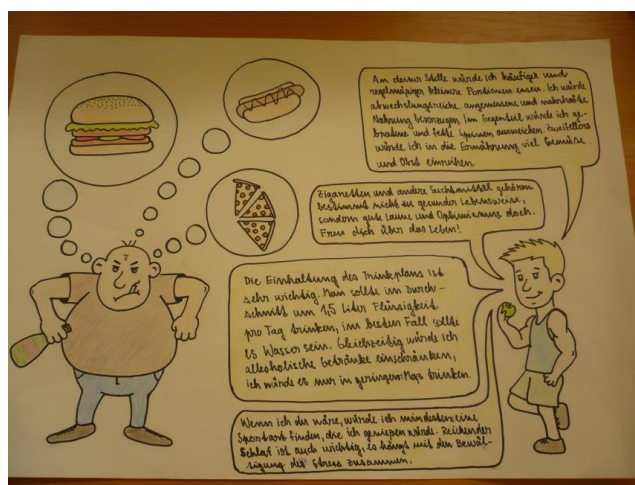 An deiner Stelle würde ich häufiger und
regelmäßiger kleinere Portionen essen. Ich würde
abwechslungsreiche, angemessene und nahrhafte
Nahrung bevorzugen. Im Gegenteil würde ich ge-
bratene und fette Speisen ausweichen. Zweifellos
würde ich in die Ernährung viel Gemüse
und Obst einreihen.
Zigaretten und andere Suchtmittel gehören
bestimmt nicht zu gesunder Lebensweise,
sondern gute Laune und Optimismus doch.
Freu dich über das Leben!
Die Einhaltung des Trinkplans ist
sehr wichtig. Man sollte im Durch-
schnitt um 1,5 Liter Flüssigkeit
pro Tag trinken, im besten Fall sollte
es Wasser sein. Gleichzeitig würde ich
alkoholische Getränke einschränken,
ich würde es nur in geringem Maps trinken.
Wenn ich du wäre, würde ich mindestens eine
Sportart finden, die ich genießen würde. Reichender
Schlaf ist auch wichtig, es hängt mit den Bewäl-
tigung der Stress zusammen.